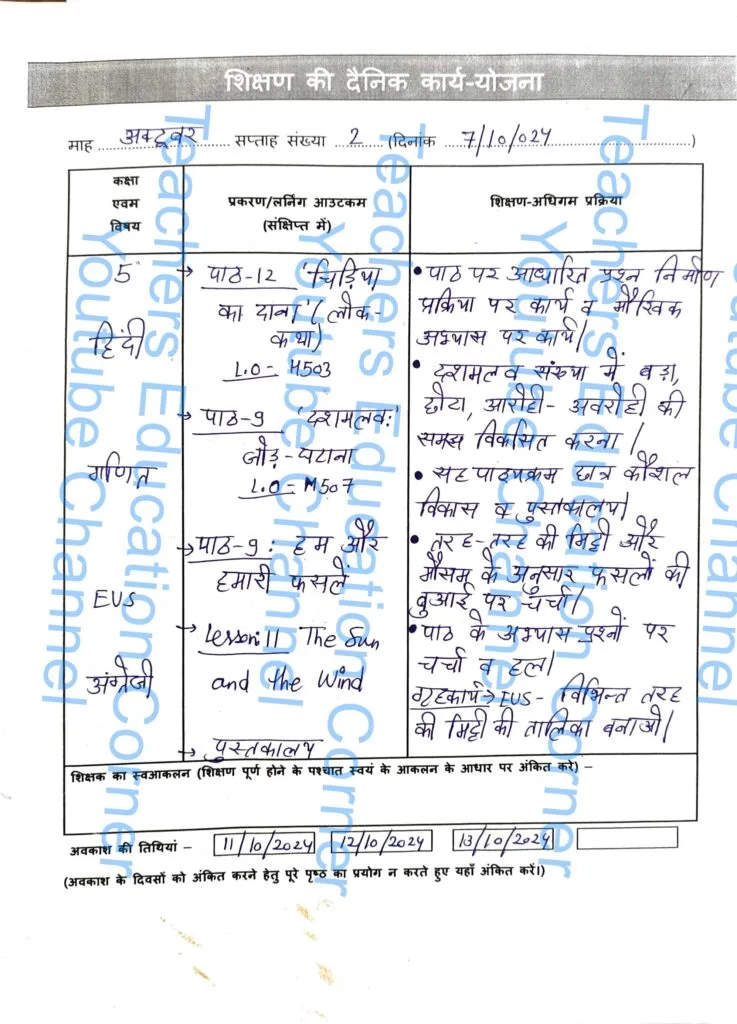 शिक्षण की दैनिक कार्य-योजना
माह अक्टूबर सप्ताह संख्या 2 (दिनांक 7/10/024)
कक्षा
एवम
विषय
प्रकरण/लर्निंग आउटकम
(संक्षिप्त में)
शिक्षण-अधिगम प्रक्रिया
5
हिंदी
गणित
EVS
अंग्रेजी
→ पाठ-12 'चिड़िया
का दाना' (लोक-
कथा)
L.O- H503
→ पाठ-9 'दशमलव:'
जोड़-घटाना
L.O- M507
→ पाठ-9: हम और
हमारी फसलें
→ Lesson:11 The Sun
and the Wind
→ पुस्तकालय
• पाठ पर आधारित प्रश्न निर्माण
प्रक्रिया पर कार्य व मौखिक
अभ्यास पर कार्य।
• दशमलव संख्या में बड़ा,
छोटा, आरोही-अवरोही की
समझ विकसित करना।
• सह पाठ्यक्रम छात्र कौशल
विकास व पुस्तकालय।
• तरह-तरह की मिट्टी और
मौसम के अनुसार फसलों की
बुआई पर चर्चा।
• पाठ के अभ्यास प्रश्नों पर
चर्चा व हल।
गृहकार्य→ EVS- विभिन्न तरह
की मिट्टी की तालिका बनाओ।
शिक्षक का स्वआकलन (शिक्षण पूर्ण होने के पश्चात स्वयं के आकलन के आधार पर अंकित करे) –
अवकाश की तिथियां - 11/10/2024 12/10/2024 13/10/2024
(अवकाश के दिवसों को अंकित करने हेतु पूरे पृष्ठ का प्रयोग न करते हुए यहाँ अंकित करें।)
Teachers Education Corner
Youtube Channel
Teachers Education Corner
Youtube Channel
Teachers Education Corner
Youtube Channel